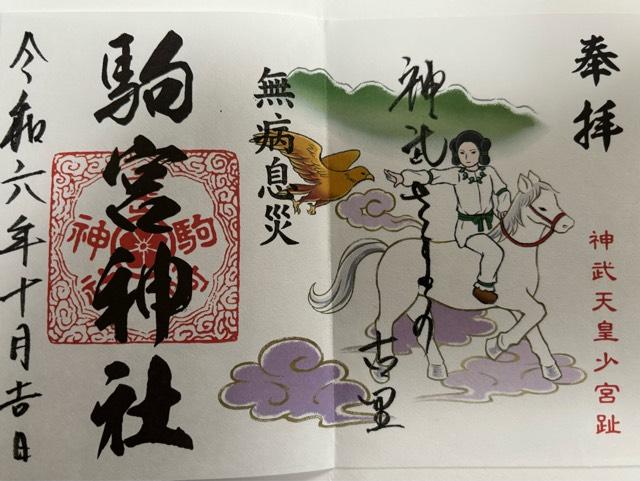 奉拝
神武天皇少宮趾
神武さまの
古里
無病息災
駒宮神社
駒宮
神社
令和六年十月吉日